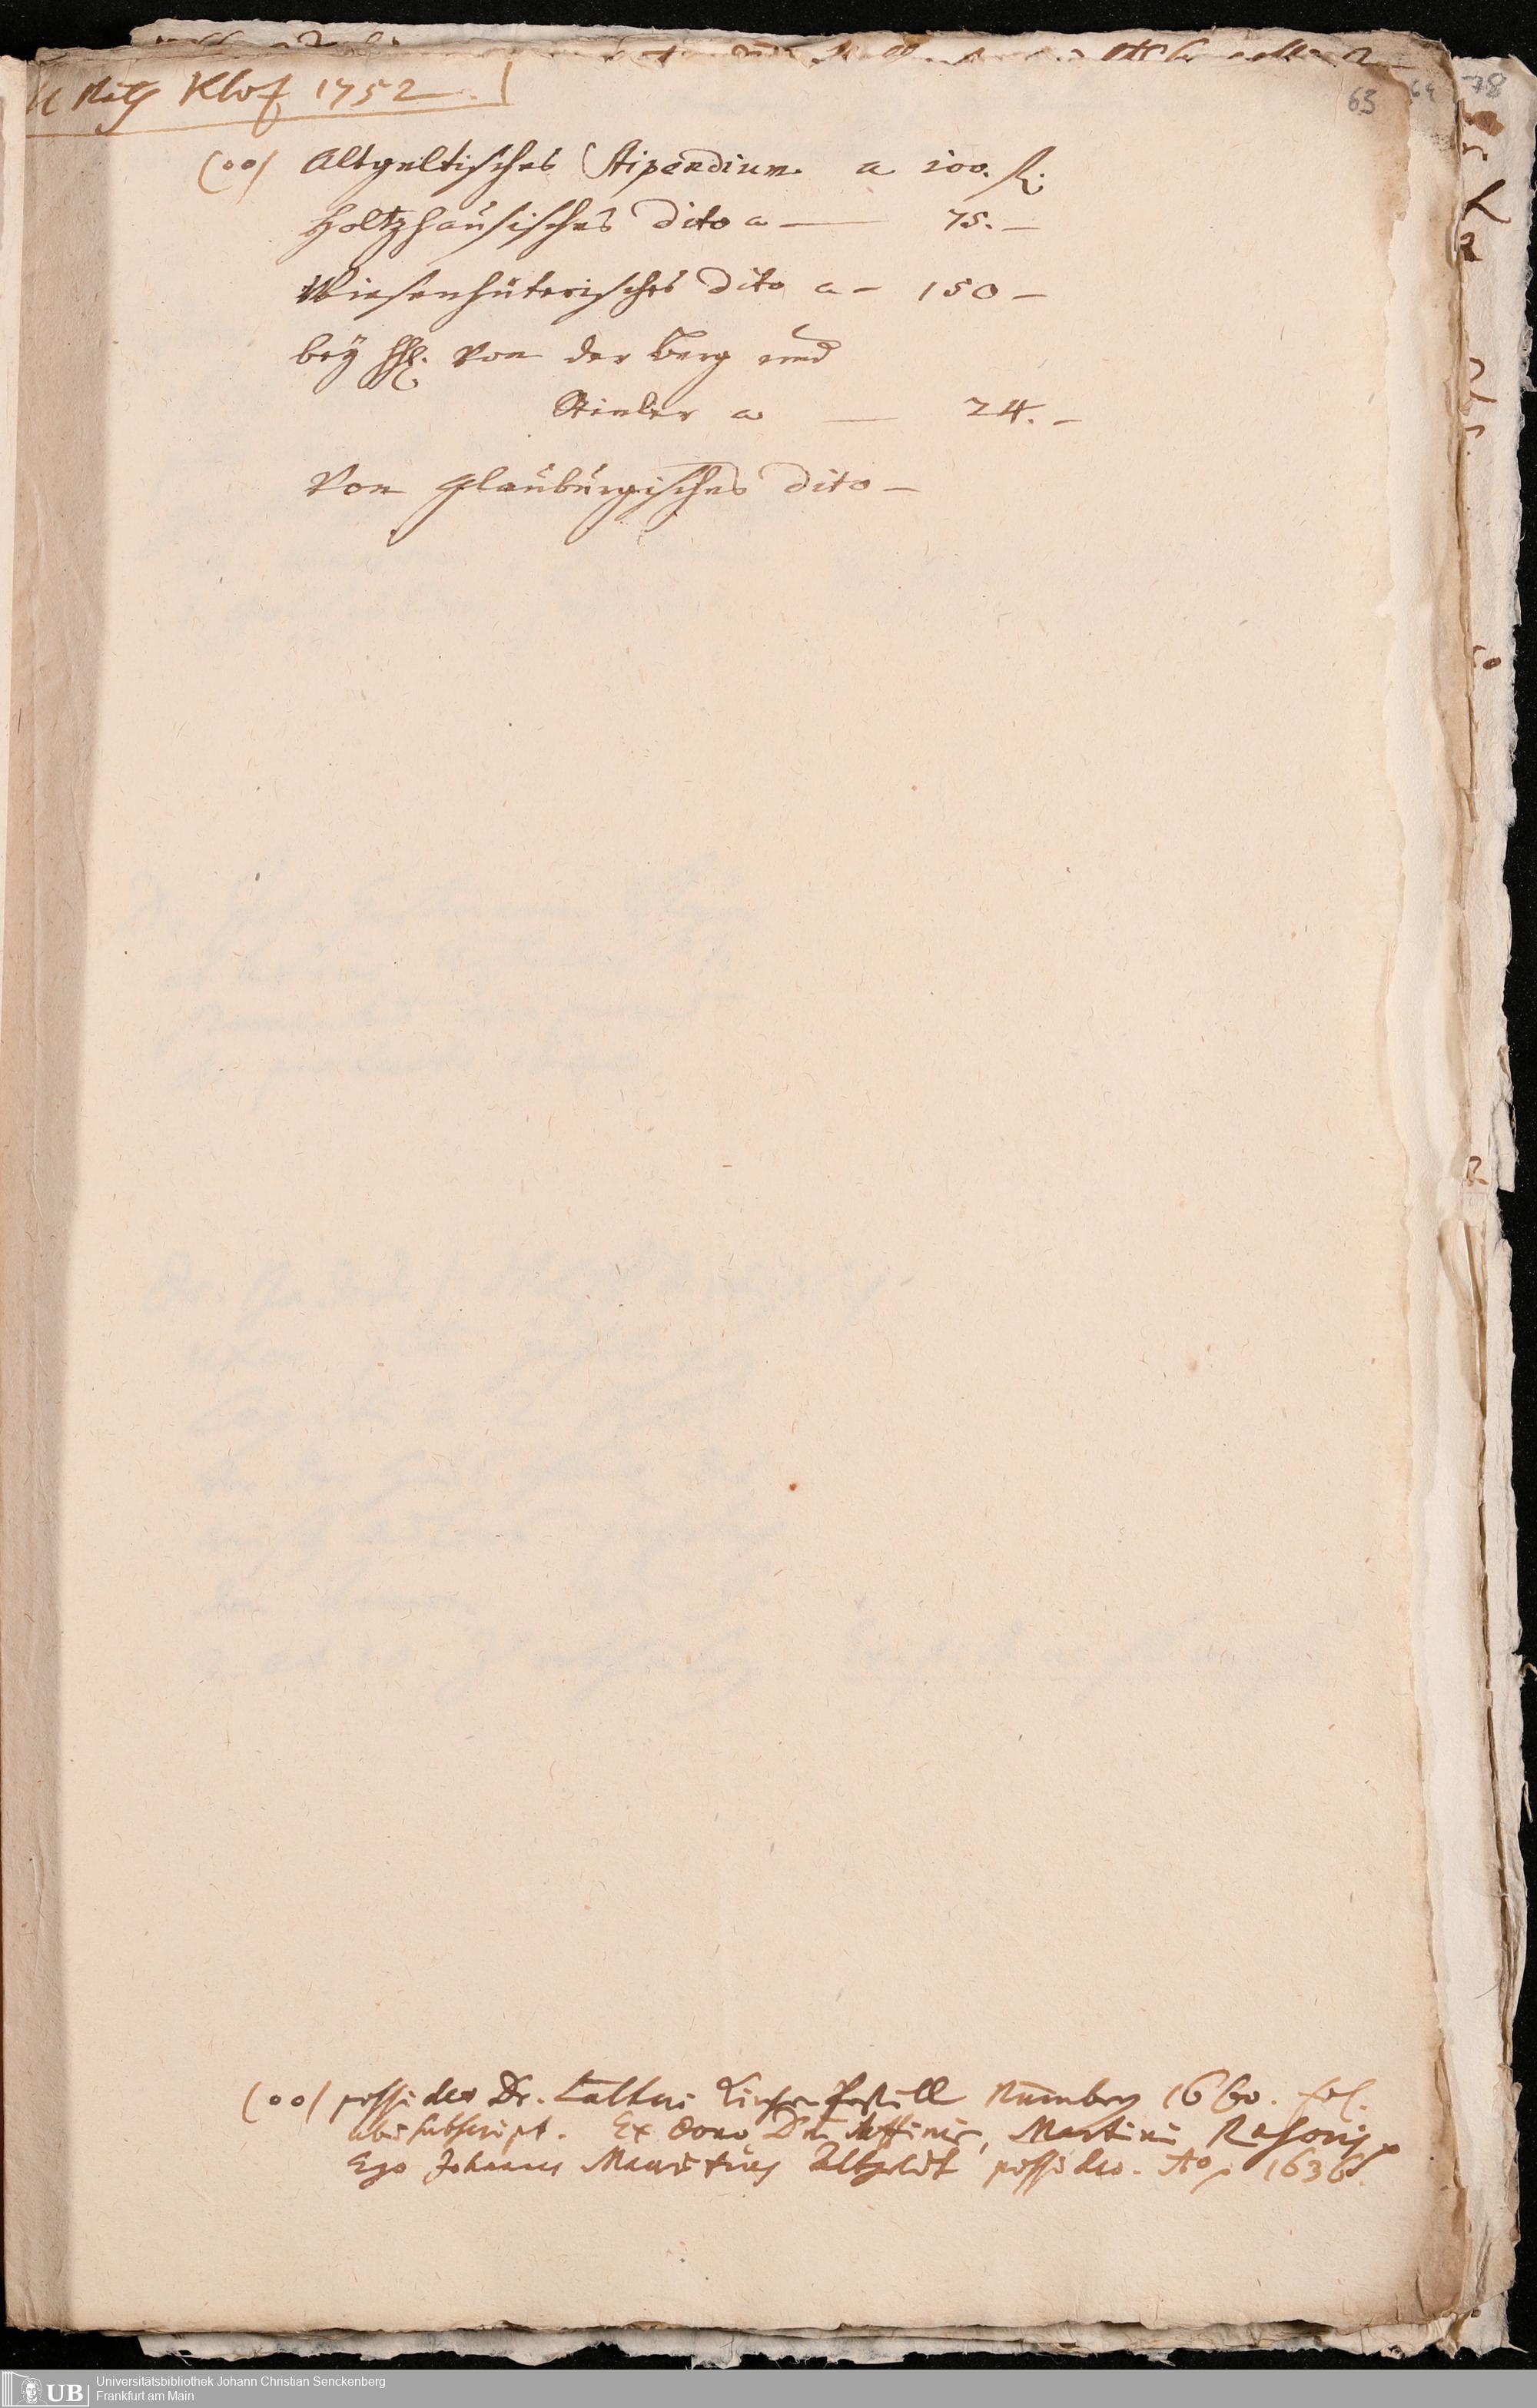 Rath Klotz 1752.
63 64 78
(00) Altgeltisches Stipendium. a 100. fl.
Holtzhausisches dito a — 75. —
Wiesenhüterisches dito a — 150 —
bey HH. von der Berg und
Stieler a — 24. —
Von Glaüburgisches dito —
(00) possideo Dr. Lutheri Kirchen Postill Nürnberg fol.
ubi subscript. Ex dono Dni Affinis, Martini Rasoris
Ego Johannes Mauritius Altgeldt possideo. Ao 1636.
UB Universitätsbibliothek Johann Christian Senckenberg
Frankfurt am Main